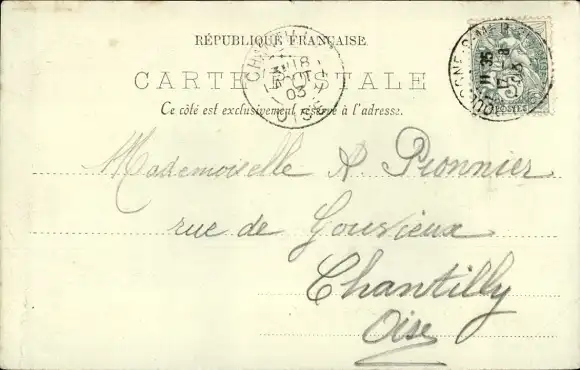 RÉPUBLIQUE FRANÇAISE
CARTE POSTALE
Ce côté est exclusivement réservé à l'adresse.
CHANTILLY
18
03
OISE
11 35
03
5
POSTES
Mademoiselle A Pionnier
rue de Gouvieux
Chantilly
Oise